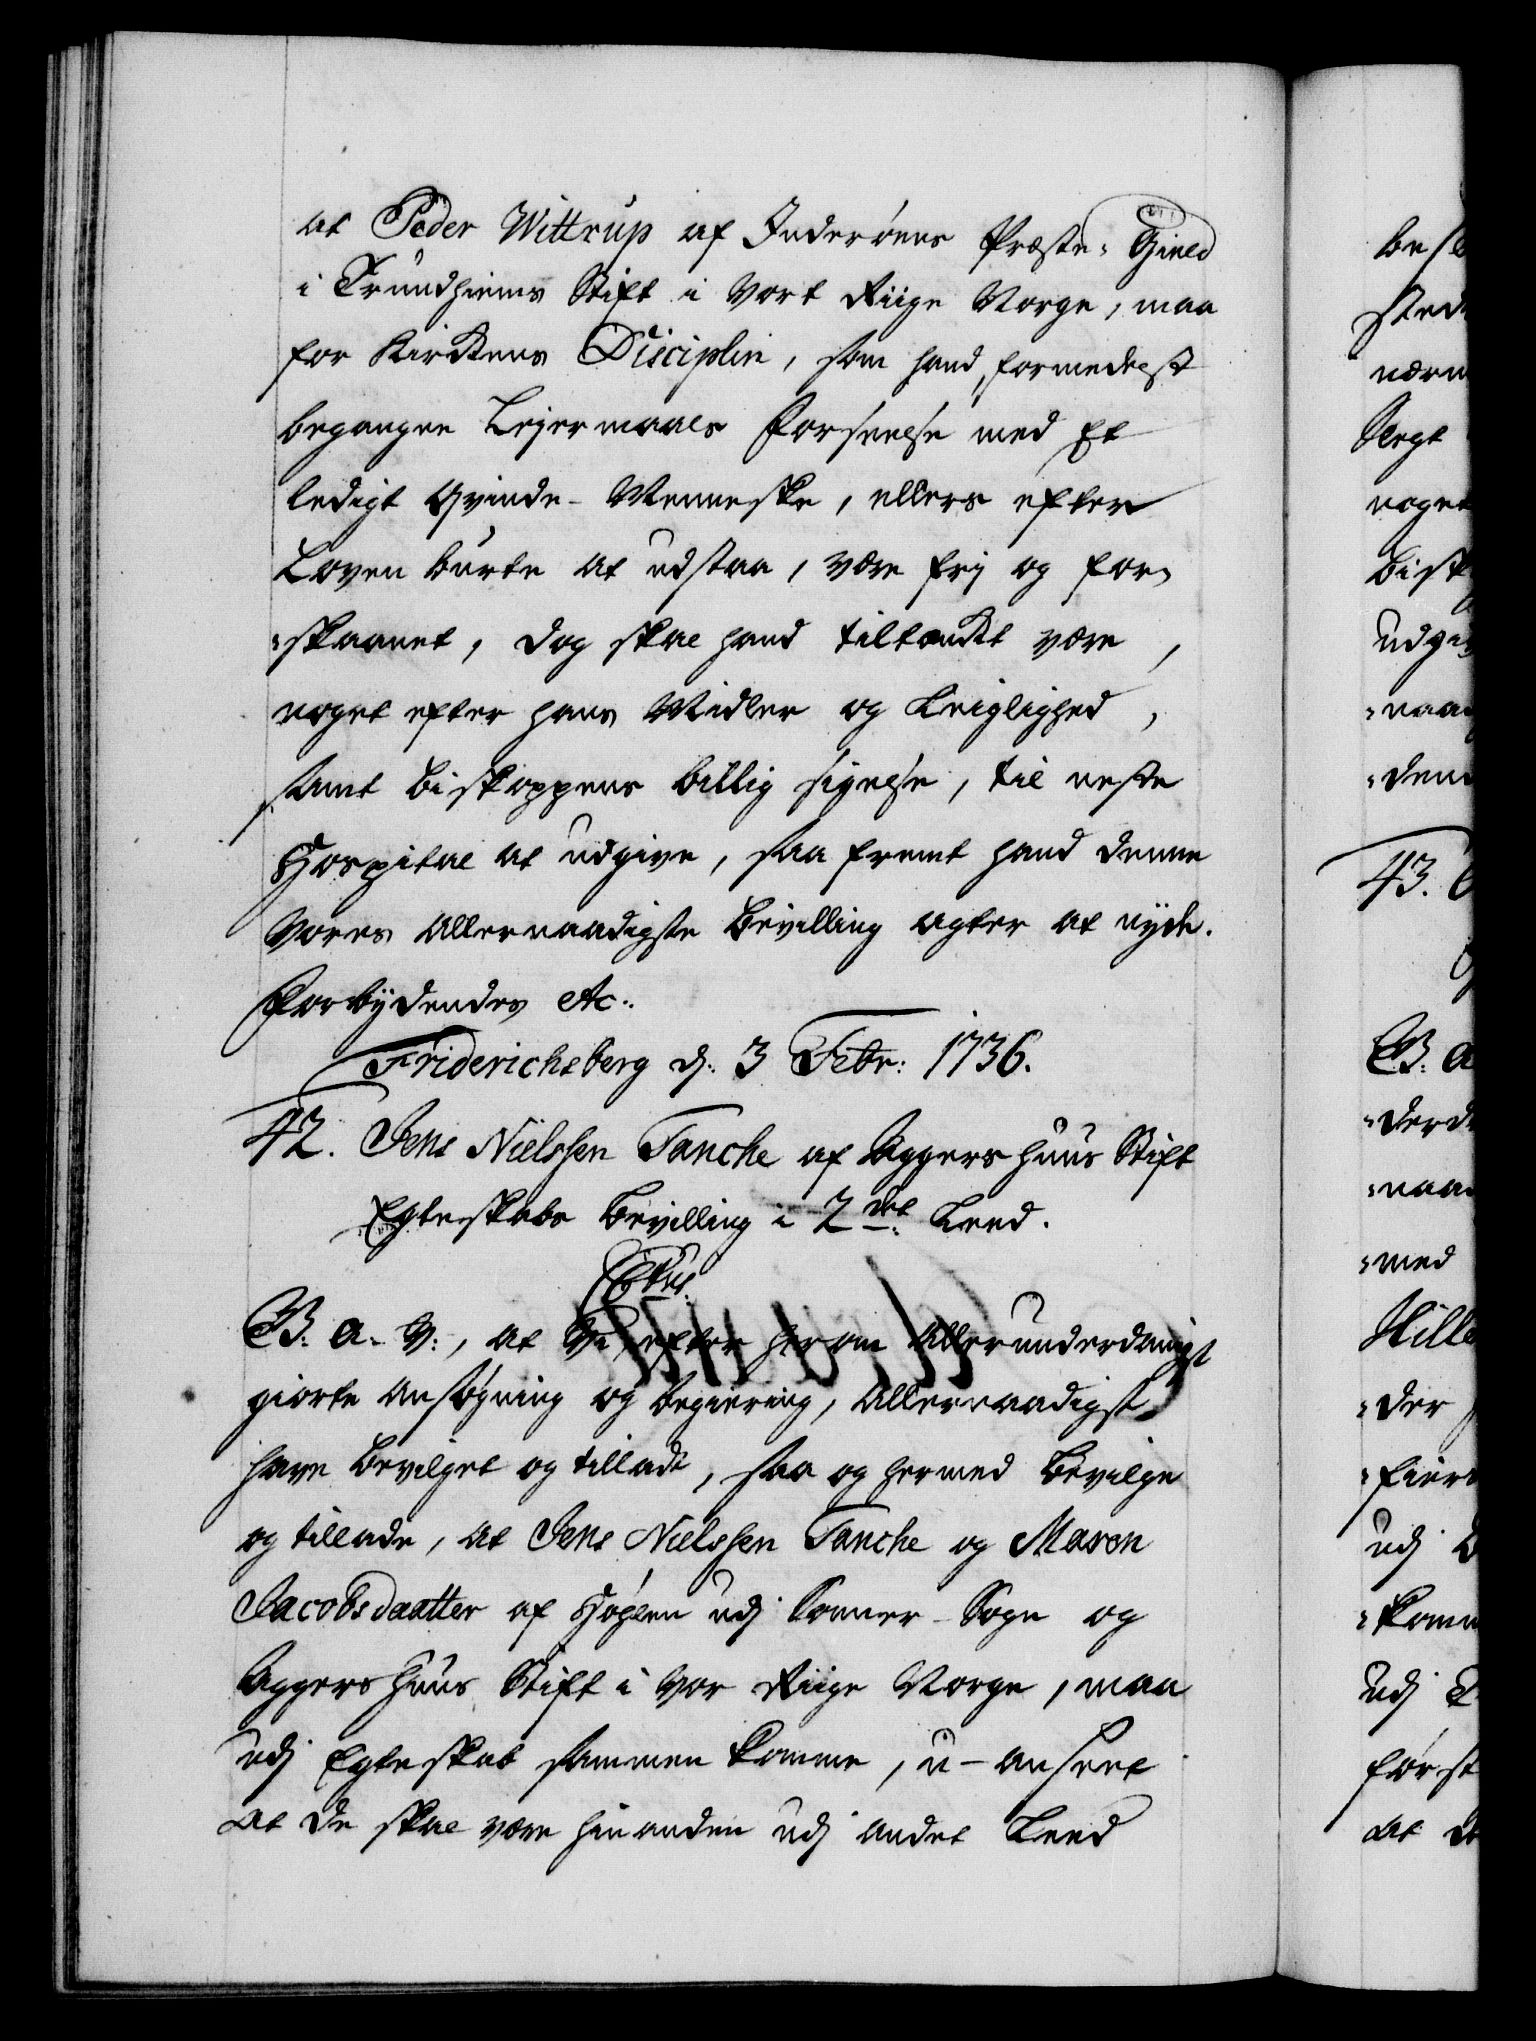 at Peder Wittrup af Inderöens Præste-Gield
i Trundhiems Stift i Vort Riige Norge, maa
for Kirckens Disciplin, som hand, formedelst
begangne Lejermaals Forseelse med Et
ledigt Qvinde-Menneske, ellers efter
Loven burte at udstaa, være frj og for-
skaanet, dog skal hand tiltænckt være,
noget efter hans Midler og Leiglighed,
samt Biskoppens billig sigelse, til neste
Hospital at udgive, saa fremt hand denne
Vores allernaadigste Bevilling agter at nyde.
Forbydendes etc:
Friderichsberg d: 3 Febr: 1736.
42. Jens Nielssen Tanche af Aggershuus Stift
Egteskabs Bevilling i 2det Leed.
B. a. V:, at Vi, efter herom allerunderdanigst
giorte ansøgning og begiering, allernaadigst
have bevilget og tilladt, saa og hermed bevilge
og tillade, at Jens Nielssen Tanche og Maren
Jacobsdaatter af Høylen udj Sogn og
Aggershuus Stift i Vor Riige Norge, maa
udj Egteskab sammen komme, u-anseet
at de skal være hinanden udj andet Leed
besl
sted
nærm
Sergt
noget
Bisk
udgi
naa
den
43.
B. a
derd
naa
med
Hille
der
fier
udj
komm
udj
først
at de